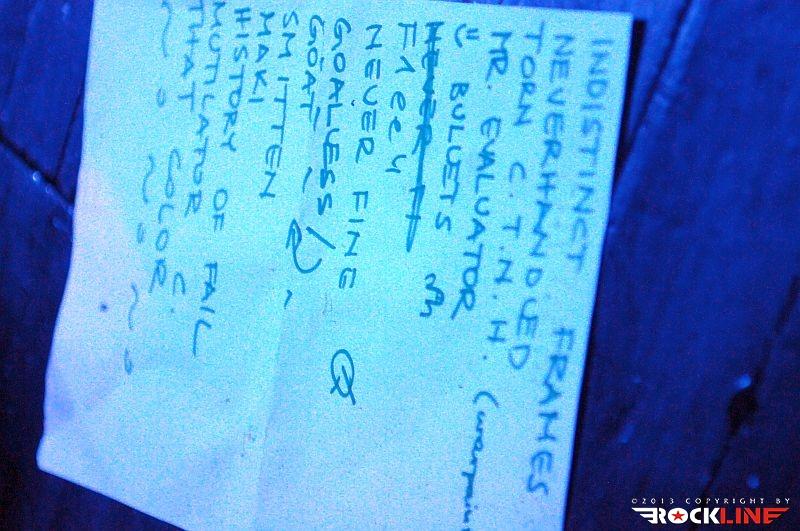 INDISTINCT. FRAMES
NEVERHANDLED
TORN C.T.N.H.
MR. EVALUATOR
BULLETS
NEVER F
NEVER FINE
GOALLESS
GOAT
SMITTEN
MAKI
HISTORY OF FAIL
MUTILATOR C.
THAT COLOR
©2013 COPYRIGHT BY
ROCKLINE